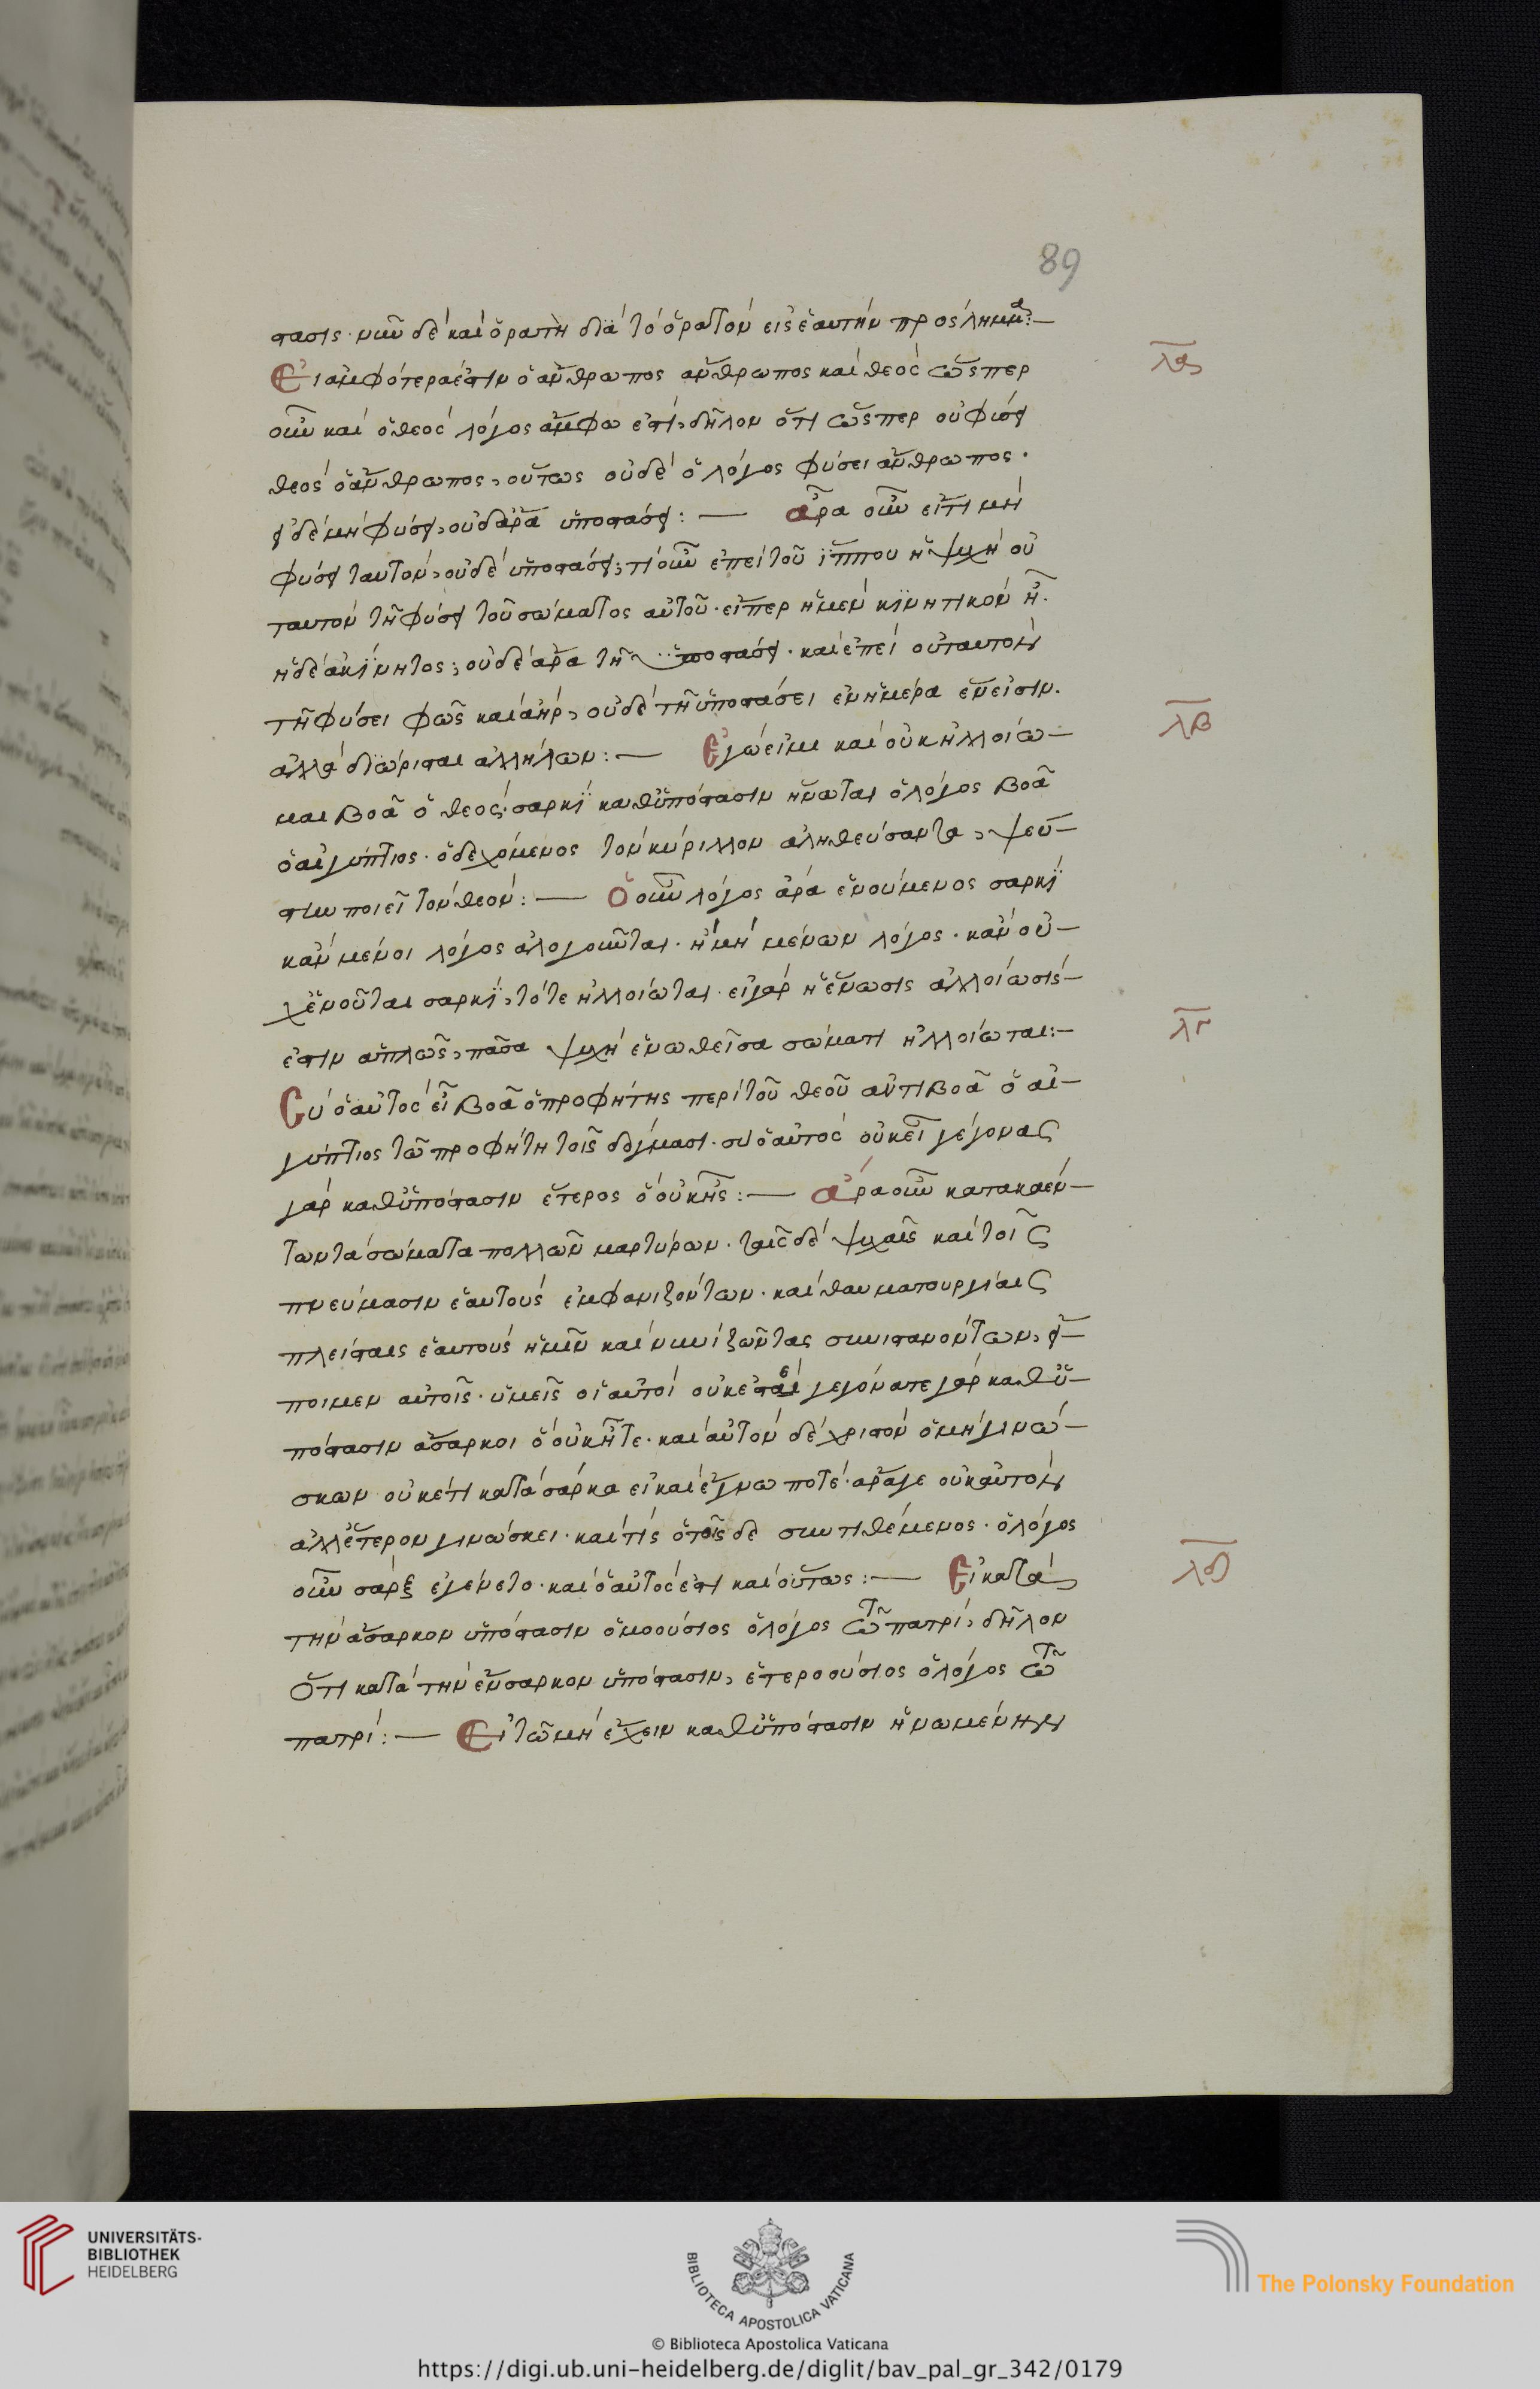 89
στασις· νῦν δὲ καὶ ὁρατὴ διὰ τὸ ὁρατὸν εἰς ἑαυτὴν προσλημμα:—
Εἰ ἀμφότερα ἐστὶν ὁ ἄνθρωπος ἄνθρωπος καὶ θεὸς ὥσπερ
λα
οὖν καὶ ὁ θεὸς λόγος ἄμφω ἐστί, δῆλον ὅτι ὥσπερ οὐ φύσει
θεὸς ὁ ἄνθρωπος, οὕτως οὐδὲ ὁ λόγος φύσει ἄνθρωπος·
εἰ δὲ μὴ φύσει, οὐδ' ἄρα ὑποστάσει:— ἆρα οὖν εἴ τι μὴ
φύσει ταυτὸν, οὐδὲ ὑποστάσει; τί οὖν ἐπεὶ τοῦ ἵππου ἡ ψυχὴ οὐ
ταυτὸν τῇ φύσει τοῦ σώματος αὐτοῦ· εἴπερ ἡ μὲν κινητικὸν ᾖ·
ἡ δὲ ἀκίνητος; οὐδὲ ἄρα τῇ ὑποστάσει· καὶ ἐπεὶ οὐ ταυτὸν
τῇ φύσει φῶς καὶ ἀὴρ, οὐδὲ τῇ ὑποστάσει ἐν ἡμέρα ἕν εἰσιν.
ἀλλὰ διώρισται ἀλλήλων:— Ἐγώ εἰμι καὶ οὐκ ἠλλοίω—
λβ
μαι βοᾷ ὁ θεός· σαρκὶ καθ' ὑπόστασιν ἥνωται ὁ λόγος βοᾷ
ὁ αἰγύπτιος· ὁ δεχόμενος τὸν κύριλλον ἀληθεύσαντα, ψεύ—
στην ποιεῖ τὸν θεόν:— Ὁ οὖν λόγος ἄρα ἑνούμενος σαρκὶ
κἂν μένοι λόγος ἀλογοῦται· ἢ μὴ μένων λόγος· κἂν οὐ—
χ ἑνοῦται σαρκί, τότε ἠλλοίωται· εἰ γὰρ ἡ ἕνωσις ἀλλοίωσις—
ἐστιν ἁπλῶς, πᾶσα ψυχὴ ἑνωθεῖσα σώματι ἠλλοίωται:—
λγ
Σὺ ὁ αὐτὸς εἶ βοᾷ ὁ προφήτης περὶ τοῦ θεοῦ ἀντιβοᾷ ὁ αἰ—
γύπτιος τῷ προφήτῃ τοῖς δόγμασι· σὺ ὁ αὐτὸς οὐκ εἶ γέγονας
γὰρ καθ' ὑπόστασιν ἕτερος ὃ οὐκ ἦς:— Ἆρα οὖν κατακαέν—
των τὰ σώματα πολλῶν μαρτύρων· ταῖς δὲ ψυχαῖς καὶ τοῖς
πνεύμασιν ἑαυτοὺς ἐμφανιζόντων· καὶ θαυματουργίαις
πλείσταις ἑαυτοὺς ἡμῖν καὶ νυνὶ ζῶντας συνιστανόντων, εἴ—
ποιμεν αὐτοῖς· ὑμεῖς οἱ αὐτοὶ οὐκ ἐστὲ γεγόνατε γὰρ καθ' ὑ—
πόστασιν ἄσαρκοι ὃ οὐκ ἦτε· καὶ αὐτὸν δὲ χριστὸν ὁ μὴ γινώ—
σκων οὐκέτι κατὰ σάρκα εἰ καὶ ἔγνω ποτέ· ἆράγε οὐκ αὐτὸν
ἀλλ' ἕτερον γινώσκει· καὶ τίς ὁ τοῖσδε συντιθέμενος· ὁ λόγος
οὖν σὰρξ ἐγένετο· καὶ ὁ αὐτός ἐστι καὶ οὕτως:— Εἰ κατὰ
λδ
τὴν ἄσαρκον ὑπόστασιν ὁμοούσιος ὁ λόγος τῷ πατρί, δῆλον
ὅτι κατὰ τὴν ἔνσαρκον ὑπόστασιν, ἑτεροούσιος ὁ λόγος τῷ
πατρί:— Εἰ τῷ μὴ ἔχειν καθ' ὑπόστασιν ἡνωμένην
UNIVERSITÄTS-
BIBLIOTHEK
HEIDELBERG
BIBLIOTECA APOSTOLICA VATICANA
The Polonsky Foundation
© Biblioteca Apostolica Vaticana
https://digi.ub.uni-heidelberg.de/diglit/bav_pal_gr_342/0179